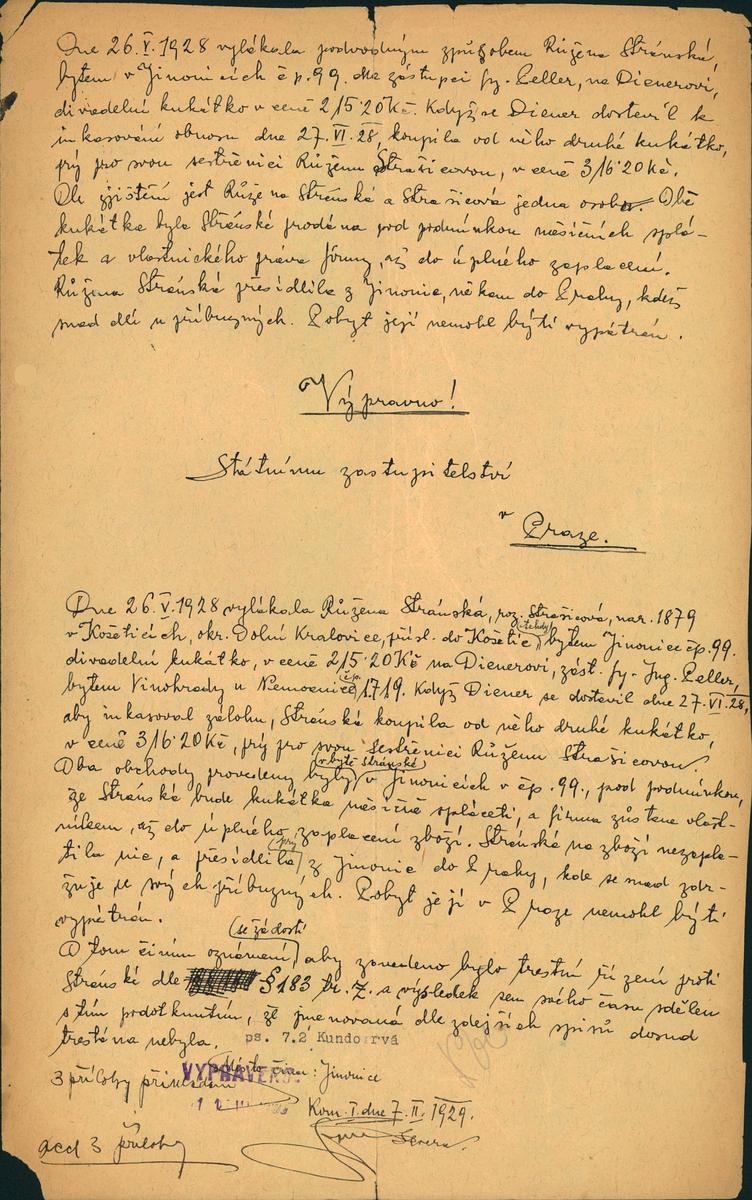 Dne 26.V.1928 vylákala podvodným způsobem Růžena Stránská,
bytem v Jinonicích čp. 99. na zástupci fy. Zeller, na Dienerovi,
divadelní kukátko v ceně 215·20Kč. Když se Diener dostavil k
inkasování obnosu dne 27.VI.28, koupila od něho druhé kukátko,
prý pro svou sestřenici Růženu Strašicovou, v ceně 316·20Kč.
Dle zjištění jest Růžena Stránská a Strašicová jedna osoba. Obě
kukátka byla Stránské prodána pod podmínkou měsíčních splá-
tek a vlastnického práva firmy, až do úplného zaplacení.
Růžena Stránská přesídlila z Jinonic, někam do Prahy, kdež
snad dlí u příbuzných. Pobyt její nemohl býti vypátrán.
Výpravno!
Státnímu zastupitelství
v
Praze.
Dne 26.V.1928 vylákala Růžena Stránská, roz. Strašicová, nar. 1879
v Košeticích, okr. Dolní Kralovice, přísl. do Košetic, (tehdy) bytem Jinonice čp. 99.
divadelní kukátko, v ceně 215·20Kč na Dienerovi, zást. fy. Ing. Zeller,
bytem Vinohrady u Nemocnice čp. 1719. Když Diener se dostavil dne 27.VI.28,
aby inkasoval zálohu, Stránská koupila od něho druhé kukátko,
v ceně 316·20Kč, prý pro svou sestřenici Růženu Strašicovou.
Oba obchody provedeny byly (v bytě Stránské) v Jinonicích v čp. 99., pod podmínkou,
že Stránská bude kukátka měsíčně spláceti, a firma zůstane vlast-
níkem, až do úplného zaplacení zboží. Stránská na zboží nezapla-
tila nic, a přesídlila (prý) z Jinonic do Prahy, kde se snad zdr-
žuje u svých příbuzných. Pobyt její v Praze nemohl býti
vypátrán.
O tom činím oznámení, (se žádostí) aby zavedeno bylo trestní řízení proti
Stránské dle § 183 tr. z. a výsledek sem svého času sdělen
s tím podotknutím, že jmenovaná dle zdejších spisů dosud
trestána nebyla.
ps. 7.2 Kundorrvá
3 přílohy přiloženy
VYPRAVENO
Místo činu: Jinonice
Kom. I. dne 7.II.1929.
acd 3 přílohy